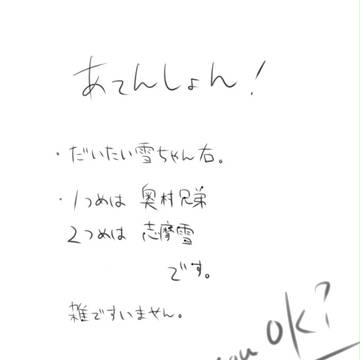 あてんしょん!
・だいたい雪ちゃん右。
・1つめは 奥村兄弟
2つめは 志摩雪
です。
雑ですいません。
you OK?